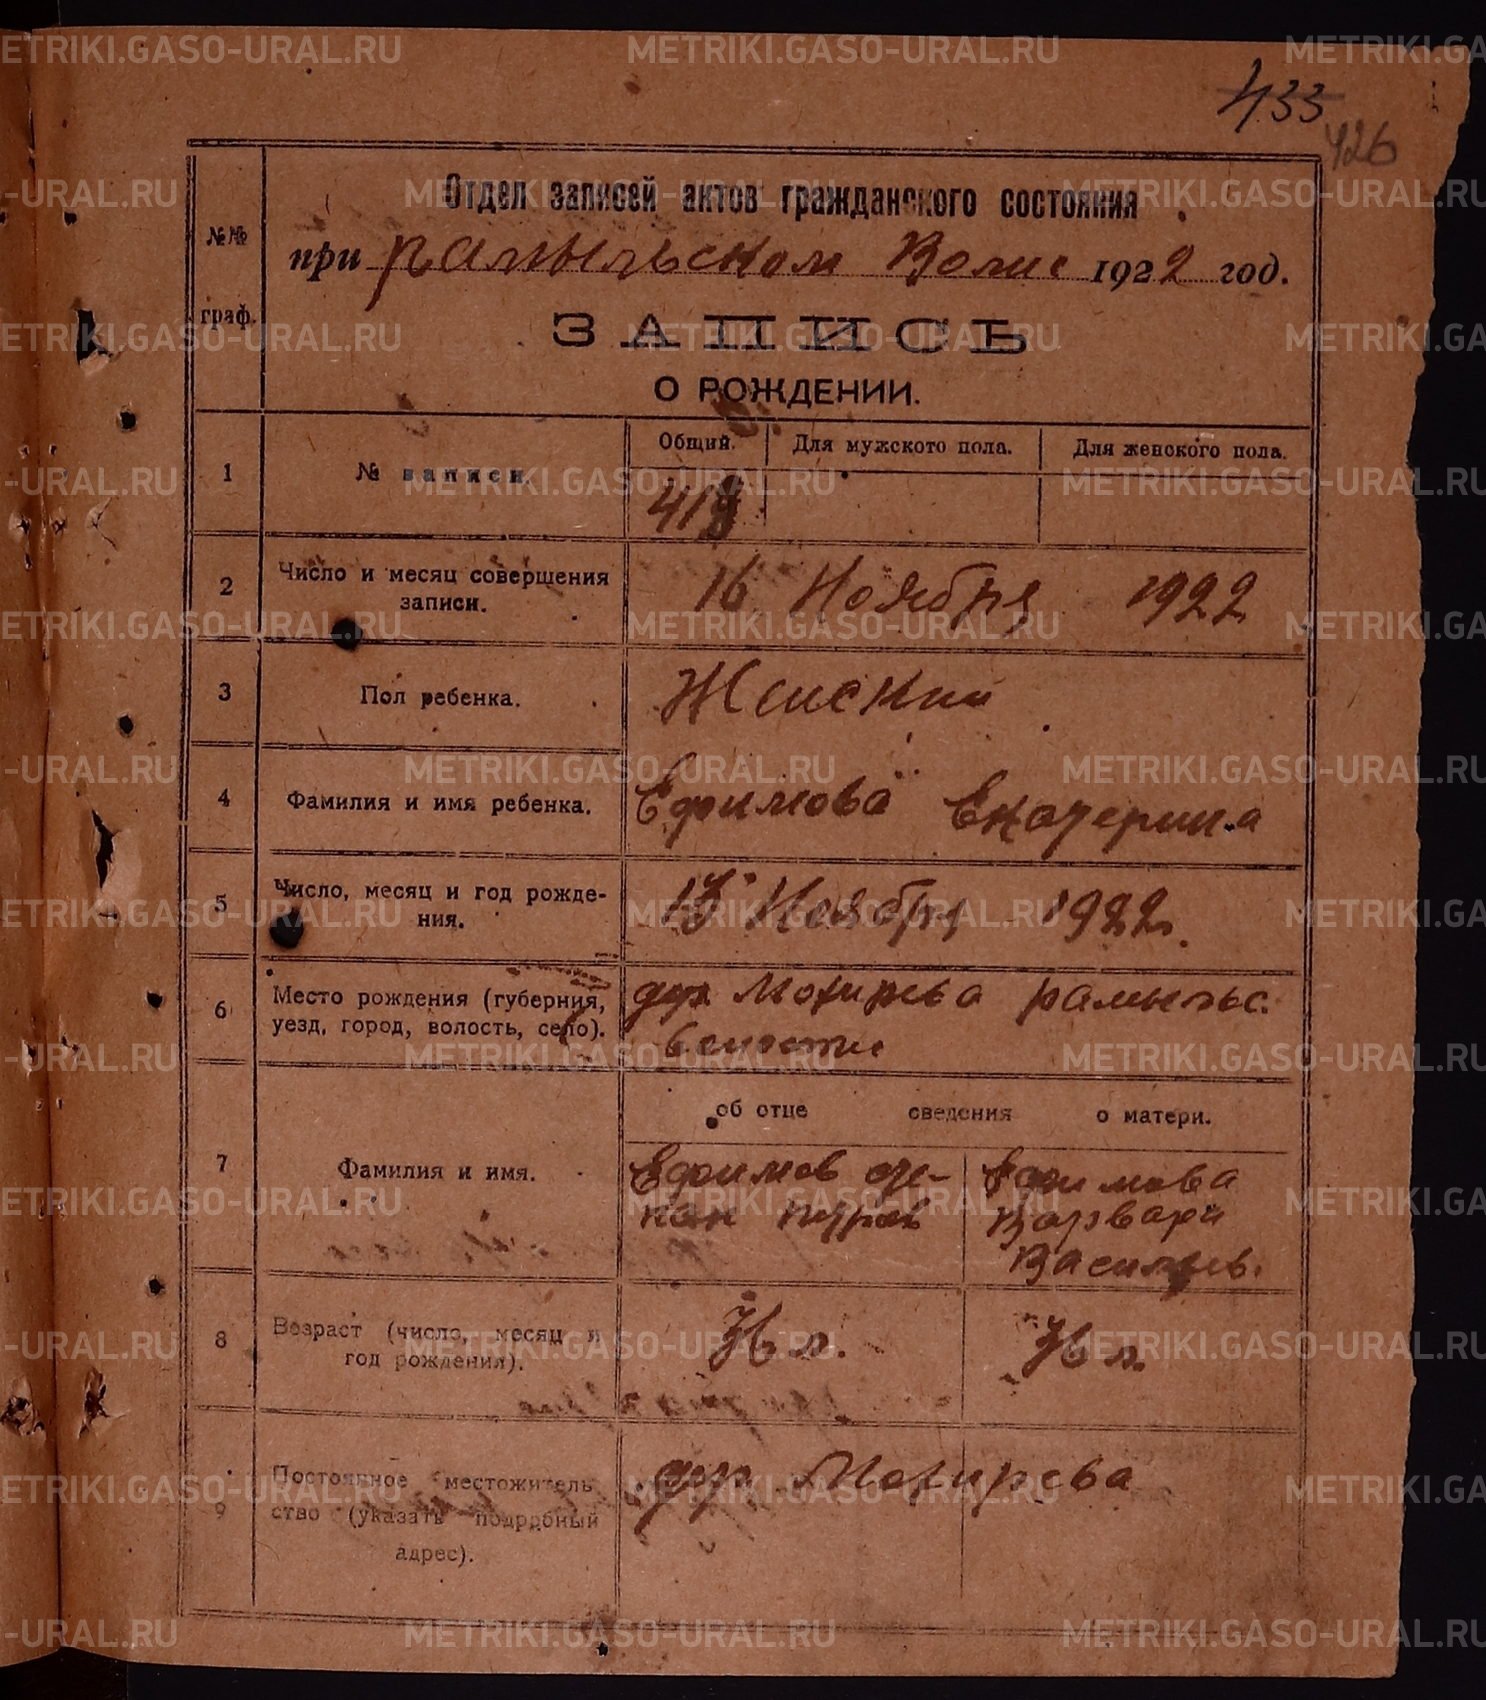 433
426
Отдел записей актов гражданского состояния
№№
при рамыльском Волис 1922 год.
граф.
ЗАПИСЬ
О РОЖДЕНИИ.
Общий. Для мужского пола. Для женского пола.
1 № записи.
2 Число и месяц совершения записи. 16 Ноября 1922
3 Пол ребенка. Женский
4 Фамилия и имя ребенка. Ефимова Екатерина
5 Число, месяц и год рожде-
ния. Ноября 1922
6 Место рождения (губерния, дер
уезд, город, волость, село). волости
об отце сведения о матери.
7 Фамилия и имя. Ефимов Сте- Ефимова
пан Петров Варвара
Василь.
8 Возраст (число, месяц и
год рождения). л. л.
9 Постоянное местожитель
ство (указать подробный
адрес). дер
METRIKI.GASO-URAL.RU